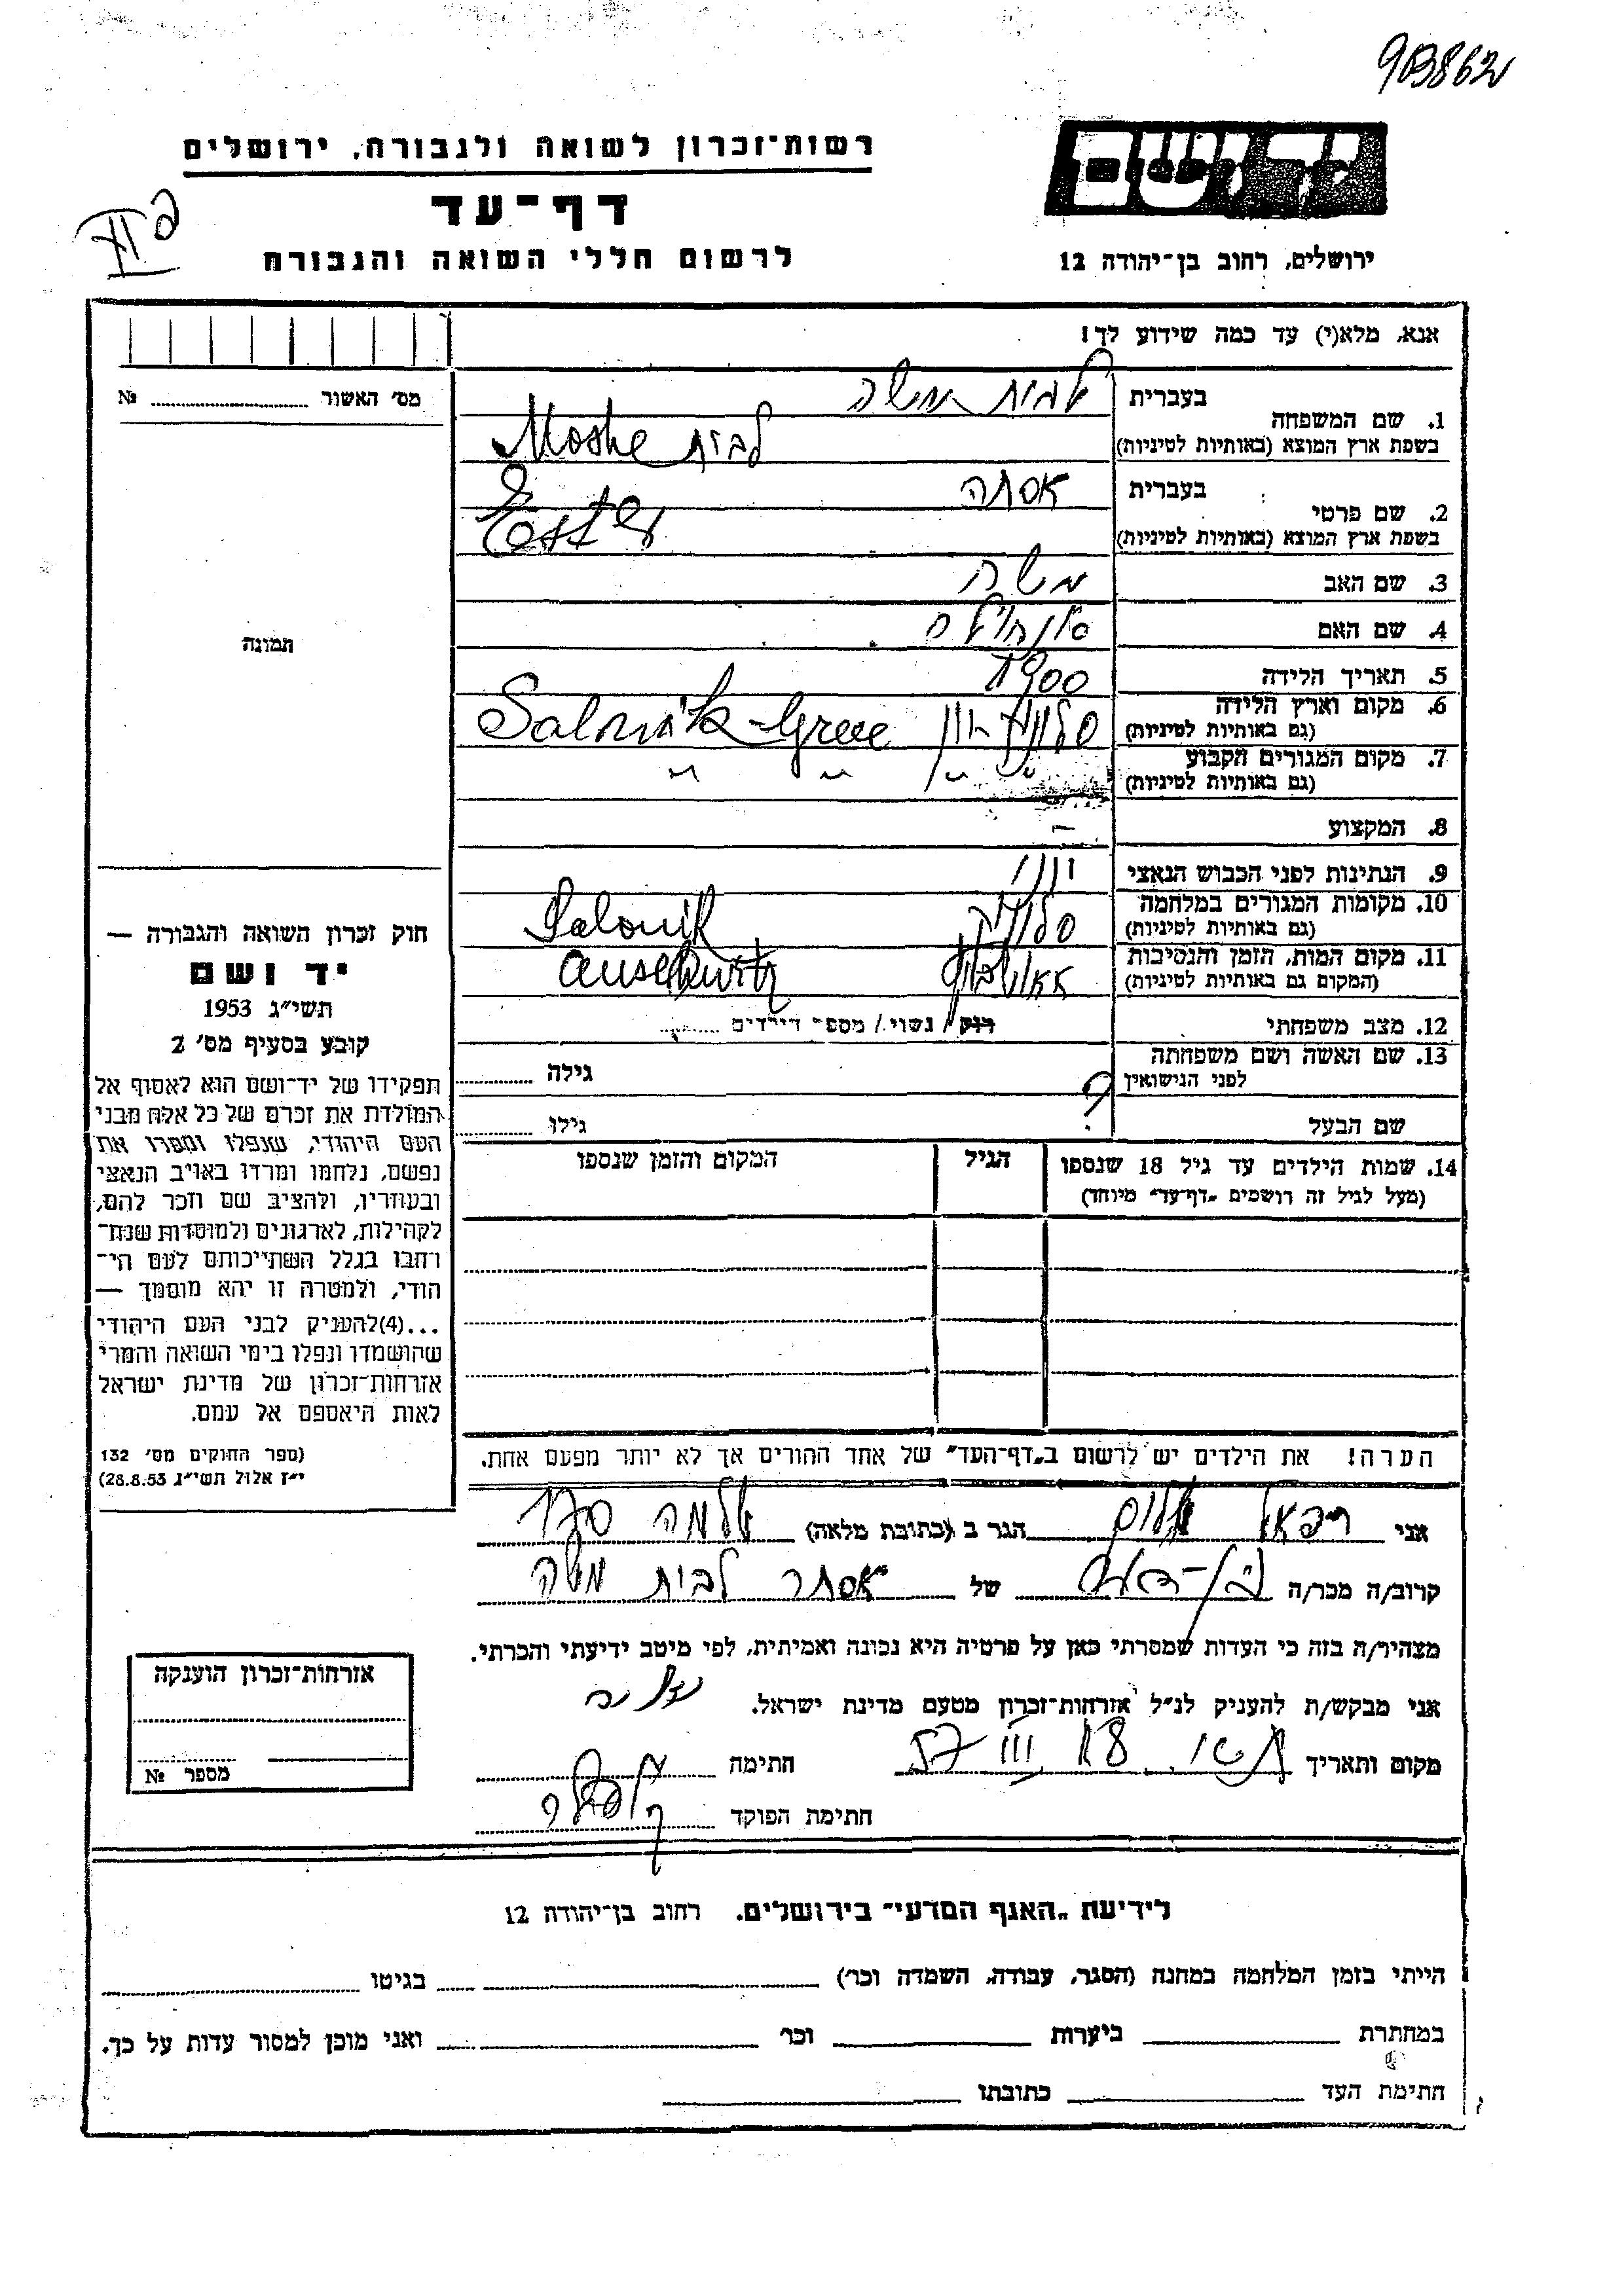 903862
יד ושם
רשות־זכרון לשואה ולגבורה, ירושלים
דף־עד
לרשום חללי השואה והגבורה
ירושלים, רחוב בן־יהודה 12
אנא, מלא(י) עד כמה שידוע לך!
מס' האשור № 
1. שם המשפחה בעברית לבית משה
בשפת ארץ המוצא (באותיות לטיניות) לבית Moshe
2. שם פרטי בעברית אסתר
בשפת ארץ המוצא (באותיות לטיניות) Ester
3. שם האב משה
4. שם האם
5. תאריך הלידה 1900
6. מקום וארץ הלידה סלוניק יון Salonik Grece
(גם באותיות לטיניות)
7. מקום המגורים הקבוע " " " "
(גם באותיות לטיניות)
8. המקצוע –
9. הנתינות לפני הכבוש הנאצי יונני
10. מקומות המגורים במלחמה סלוניק Salonik
(גם באותיות לטיניות)
11. מקום המות, הזמן והנסיבות אאושביץ Auschwitz
(המקום גם באותיות לטיניות)
12. מצב משפחתי רוק / נשוי / מספר הילדים
13. שם האשה ושם משפחתה גילה
לפני הנישואין ?
שם הבעל גילו
14. שמות הילדים עד גיל 18 שנספו הגיל המקום והזמן שנספו
(מעל לגיל זה רושמים „דף־עד" מיוחד)
הערה! את הילדים יש לרשום ב„דף־העד" של אחד ההורים אך לא יותר מפעם אחת.
תמונה
חוק זכרון השואה והגבורה —
יד ושם
תשי"ג 1953
קובע בסעיף מס' 2
תפקידו של יד־ושם הוא לאסוף אל
המולדת את זכרם של כל אלה מבני
העם היהודי, שנפלו ומסרו את
נפשם, נלחמו ומרדו באויב הנאצי
ובעוזריו, ולהציב שם וזכר להם,
לקהילות, לארגונים ולמוסדות שנח־
רחבו בגלל השתייכותם לעם הי־
הודי, ולמטרה זו יהא מוסמך —
...(4)להעניק לבני העם היהודי
שהושמדו ונפלו בימי השואה והמרי
אזרחות־זכרון של מדינת ישראל
לאות היאספם אל עמם.
(ספר החוקים מס' 132
י"ז אלול תשי"ג 28.8.53)
אני רפאל שלום הגר ב (כתובת מלאה) שלמה
קרוב/ה מכר/ה בן-דוד של אסתר לבית משה
מצהיר/ה בזה כי העדות שמסרתי כאן על פרטיה היא נכונה ואמיתית, לפי מיטב ידיעתי והכרתי.
אני מבקש/ת להעניק לנ"ל אזרחות־זכרון מטעם מדינת ישראל.
מקום ותאריך חתימה
חתימת הפוקד
אזרחות־זכרון הוענקה
מספר №
לידיעת „האגף המדעי" בירושלים. רחוב בן־יהודה 12
הייתי בזמן המלחמה במחנה (הסגר, עבודה, השמדה וכר') בגיטו
במחתרת ביערות וכר' ואני מוכן למסור עדות על כך.
חתימת העד כתובתו